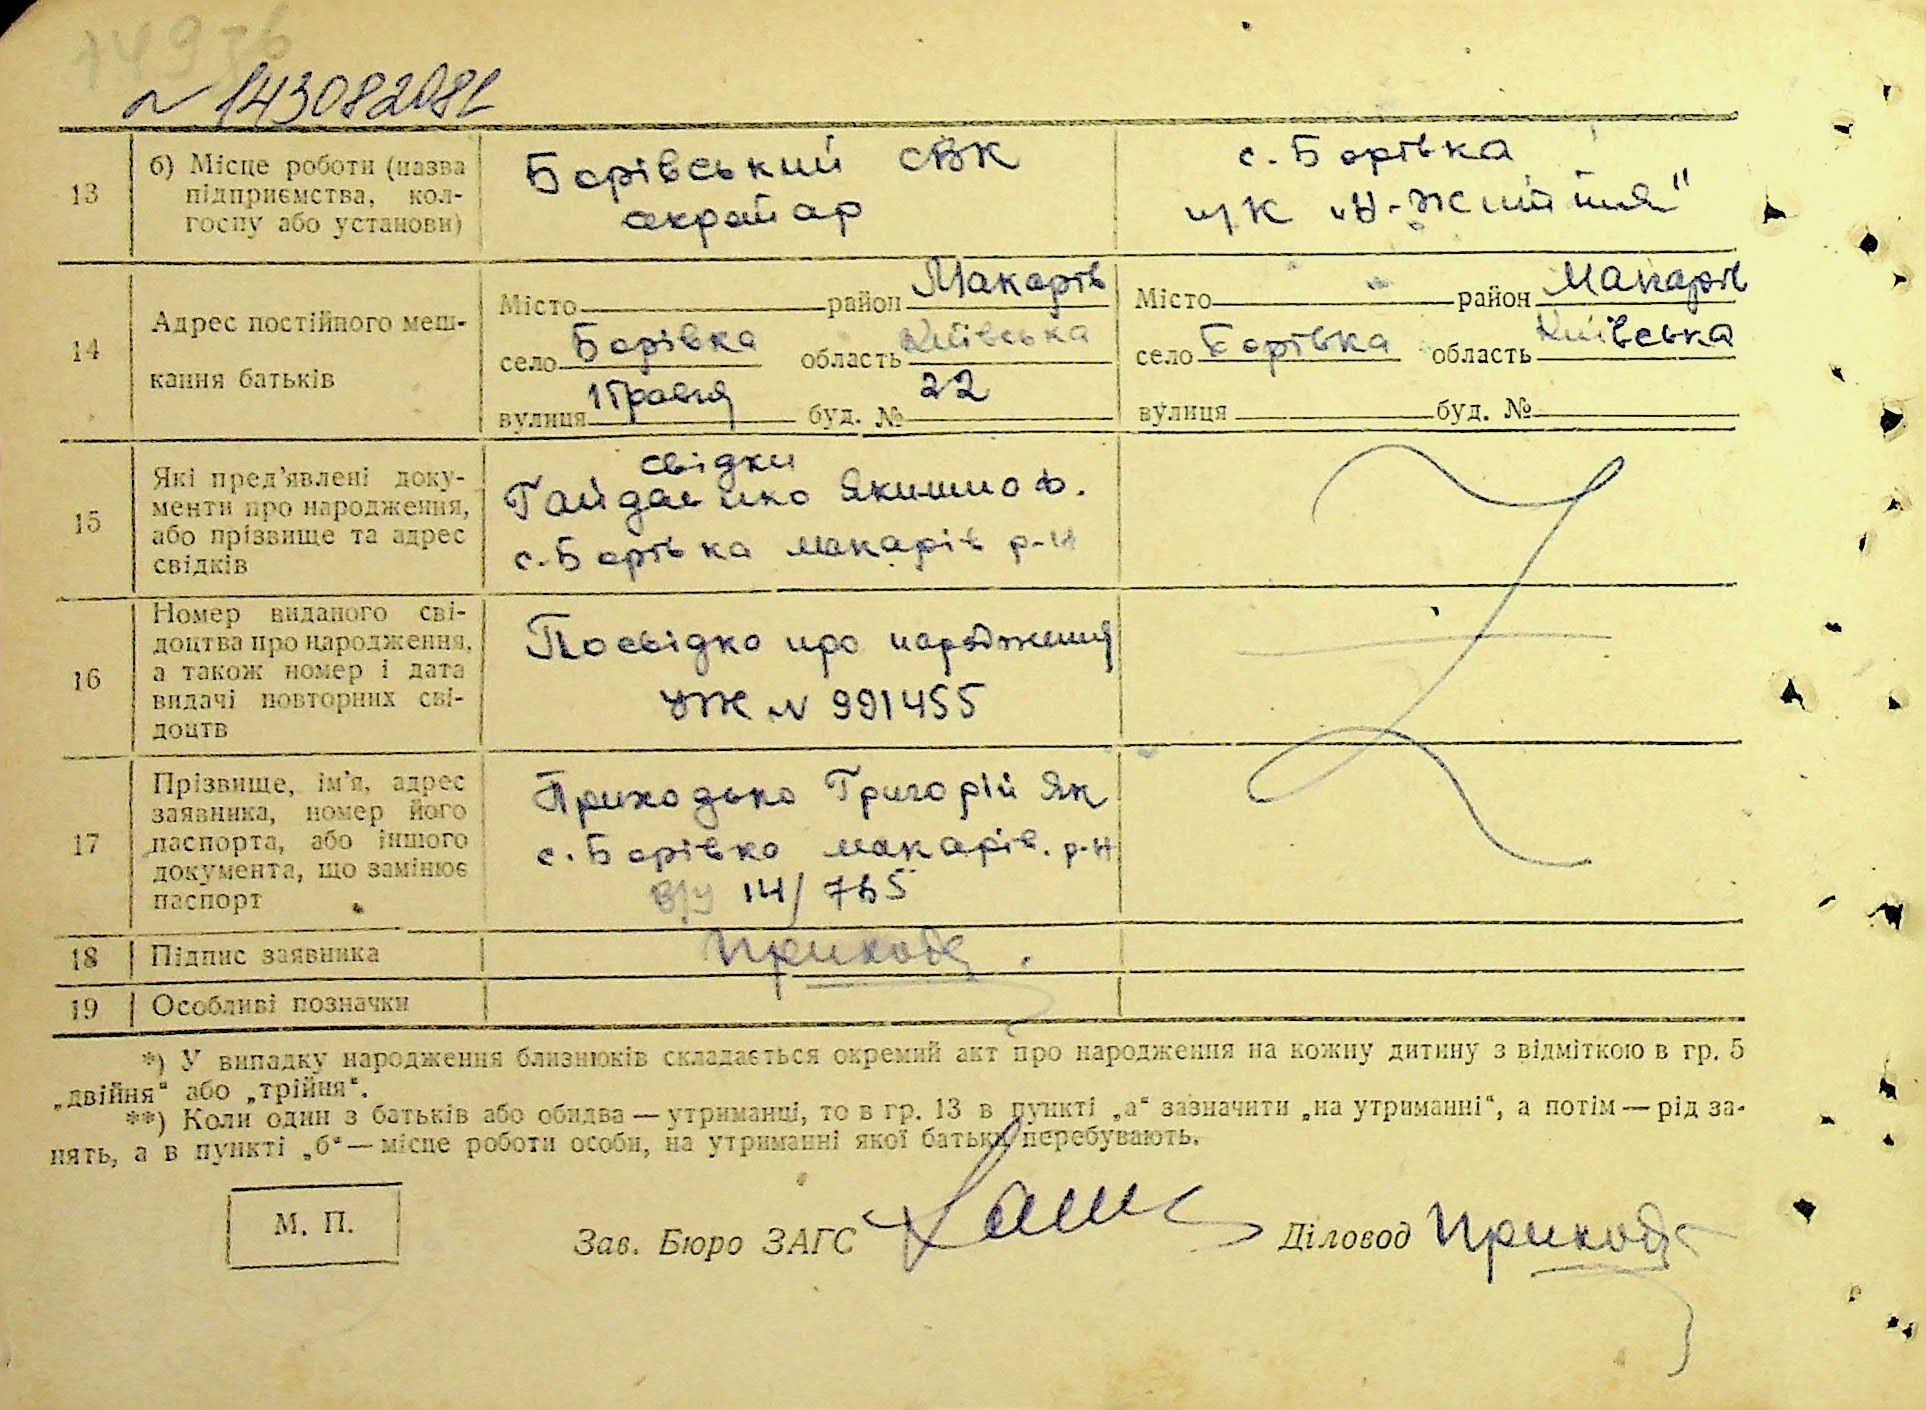 14976
№ 143082081
13
б) Місце роботи (назва
підприємства, кол-
госпу або установи)
Борівський СВК
с. Борівка
ч/к „Н-Життя"
14
Адрес постійного меш-
кання батьків
Місто район Макарів
село Борівка область Київська
вулиця 1 Травня буд. № 22
Місто район Макарів
село Борівка область Київська
вулиця буд. №
15
Які пред'явлені доку-
менти про народження,
або прізвище та адрес
свідків
свідки
с. Борівка Макарів р-н
16
Номер виданого сві-
доцтва про народження,
а також номер і дата
видачі повторних сві-
доцтв
Посвідка про народження
УЖ № 991455
17
Прізвище, ім'я, адрес
заявника, номер його
паспорта, або іншого
документа, що замінює
паспорт
Приходько Григорій Як
с. Борівка Макарів. р-н
14/765
18
Підпис заявника
Приход
19
Особливі позначки
*) У випадку народження близнюків складається окремий акт про народження на кожну дитину з відміткою в гр. 5
„двійня" або „трійня".
**) Коли один з батьків або обидва — утриманці, то в гр. 13 в пункті „а" зазначити „на утриманні", а потім — рід за-
нять, а в пункті „б" — місце роботи особи, на утриманні якої батьки перебувають.
М. П.
Зав. Бюро ЗАГС
Діловод Приход